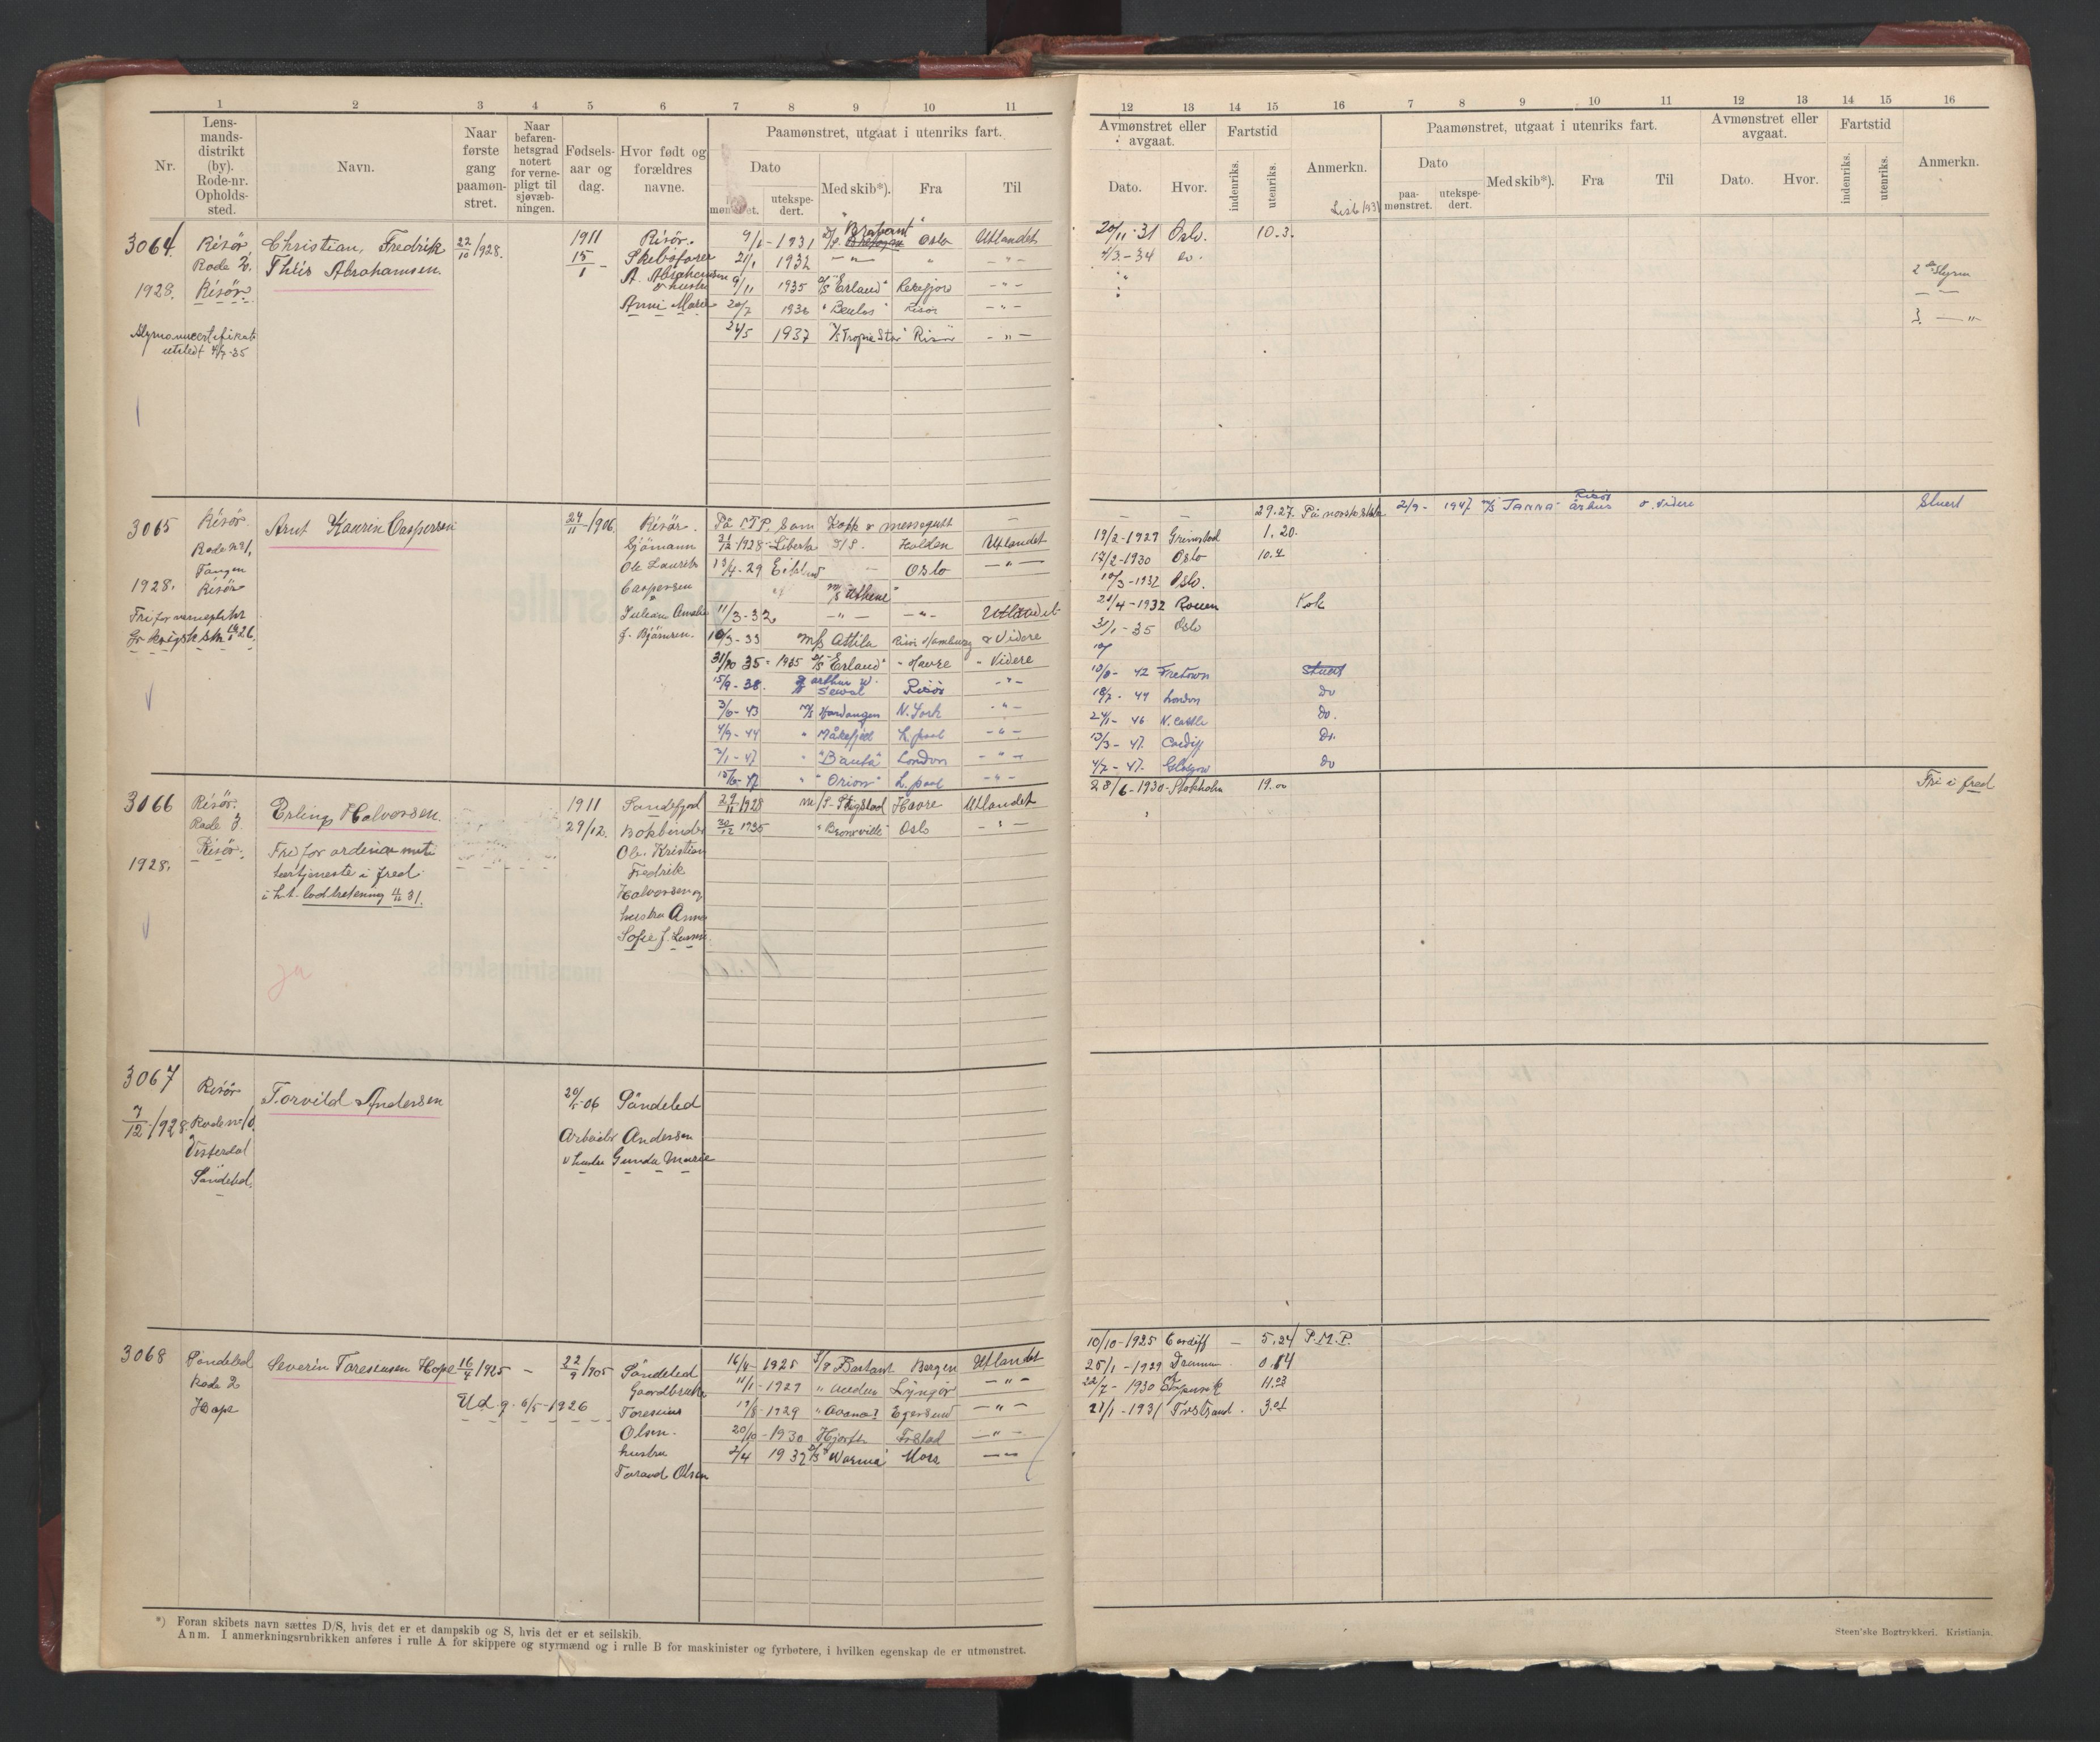 1 2 3 4 5 6 7 8 9 10 11
Nr.
Lens-
mands-
distrikt
(by).
Rode-nr.
Opholds-
sted.
Navn.
Naar
første
gang
paamøn-
stret.
Naar
befaren-
hetsgrad
notert
for verne-
pligt til
sjøvæb-
ningen.
Fødsels-
aar og
dag.
Hvor født og
forældres
navne.
Paamønstret, utgaat i utenriks fart.
Dato
mønstret.
utekspe-
dert.
Med skib*).
Fra
Til
3064
Risör
Rode 2.
1928. Risör
Christian, Fredrik
Thiis Abrahamsen.
22/10 1928.
1911
15/1
Risör.
Skibsfører
A. Abrahamsen
o hustru
Anni Marie
Styrmanncertifikat
utstedt 4/7-35
9/1 - 1931 D/S "Brabant" Oslo Utlandet
21/1 1932 - " - " - " -
9/11 1935 D/S "Erland" Rekefjord - " -
20/7 1936 "Benlos" Risör - " -
26/5 1937 M/S Tropic Star Risör - " -
3065
Risör
Rode nr 1,
Tangen
1928. Risör
Fri for verneplikt
Arnt Kaurin Caspersen
24/11 - 1906.
Risör.
Sjömann
Ole Laurits
Caspersen
Juliane Amalie
f. Björnsen.
På STP. Som Kokk & messegutt
21/12 1928 - Liberta S/S. Halden Utlandet
13/4 - 29 Oslo - " -
" M/S "Athene"
11/3 - 32 - " - - " - Utlandet
10/3 - 33 M/S Attila Risör Hamburg & Videre
31/10 35 - 1935 D/S "Erland" - Havre " Videre
15/9 - 38. Arthur W. Sewal Risör - " -
3/6 - 43 M/S Hardanger N. York - " -
4/9 - 44 " Måkefjell L. pool - " -
3/1 - 47 " "Bauta" London - " -
15/6 - 47 " "Orion" L. pool - " -
3066
Risör.
Rode 3.
1928. Risör.
Erling Halvorsen.
Fri for ordinær mili
tærtjeneste i fred
i h.t. lodtrekning 4/11 31.
ja
1911
29/12.
Sandefjord
Bokbinder
Ole Kristian
Fredrik
Halvorsen og
hustru Anna
Sofie f. Larsen.
29/11 1928 M/S Stigstad Havre Utlandet
30/12 1935 "Bronxville" Oslo - " -
3067
7/12 - 1928.
Risör
Rode nr 10.
Vesterdal
Söndeled.
Torvild Andersen
20/5 - 06
Söndeled
Arbeider Andersen
o hustru Gunda Marie
3068
Söndeled
Rode 2
Hope
Severin Toresensen Hope
16/4 1925 -
Ud. g. 6/5 - 1926
22/9 1905
Söndeled
Gaardbruker
Toresius
Olsen.
hustru
Torand Olsen
16/4 - 1925 S/S Bartant Bergen Utlandet
11/1 - 1929 " Lyngör - " -
19/8 - 1929 Egersund - " -
20/10 - 1930 Hjorth - " -
2/4 1932 D/S "Warma" Moss - " -
*) Foran skibets navn sættes D/S, hvis det er et dampskib og S, hvis det er et seilskib.
Anm. I anmerkningsrubrikken anføres i rulle A for skippere og styrmænd og i rulle B for maskinister og fyrbøtere, i hvilken egenskap de er utmønstret.
12 13 14 15 16 7 8 9 10 11 12 13 14 15 16
Avmønstret eller
avgaat.
Dato.
Hvor.
Fartstid
indenriks.
utenriks.
Anmerkn.
Liste 1931
Paamønstret, utgaat i utenriks fart.
Dato
paa-
mønstret.
utekspe-
dert.
Med skib*).
Fra
Til
Avmønstret eller
avgaat.
Dato.
Hvor.
Fartstid
indenriks.
utenriks.
Anmerkn.
20/11 - 31 Oslo. 10.3.
2/3 - 34 do.
2den Styrm
- " -
3. - " -
- - 29.27. På norske skibe 2/9 - 1947 M/S "JANNA" Risör Århus o. Videre Stuert
19/2 - 1929 Grimstad 1.20.
17/2 - 1930 Oslo 10.4
10/3 - 1932 Oslo.
21/4 - 1932 Rouen Kok
31/1 - 35 Oslo
10/
13/8 - 42 Freetown Stuert
18/7 - 44 London Do
24/1 - 46 N. Castle Do.
13/3 - 47. Cardiff Do.
4/7 - 47. Glasgow Do
28/6 - 1930 - Stokholm 19.00 Fri i fred
10/10 - 1925 Cardiff - 5.24 P.M.P.
25/1 - 1929 Drammen 0.14
22/7 - 1930 11.03
21/1 - 1931 Tvedstrand. 3.01
Steen'ske Bogtrykkeri. Kristiania.